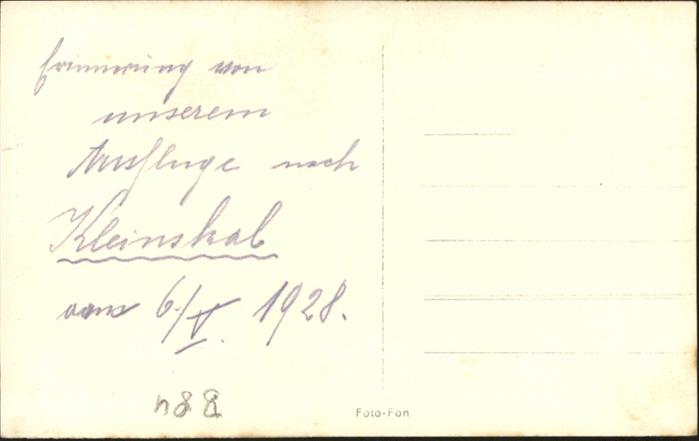 Erinnerung von
unserem
Ausfluge nach
Kleinskal
vom 6/V. 1928.
Foto-Fon